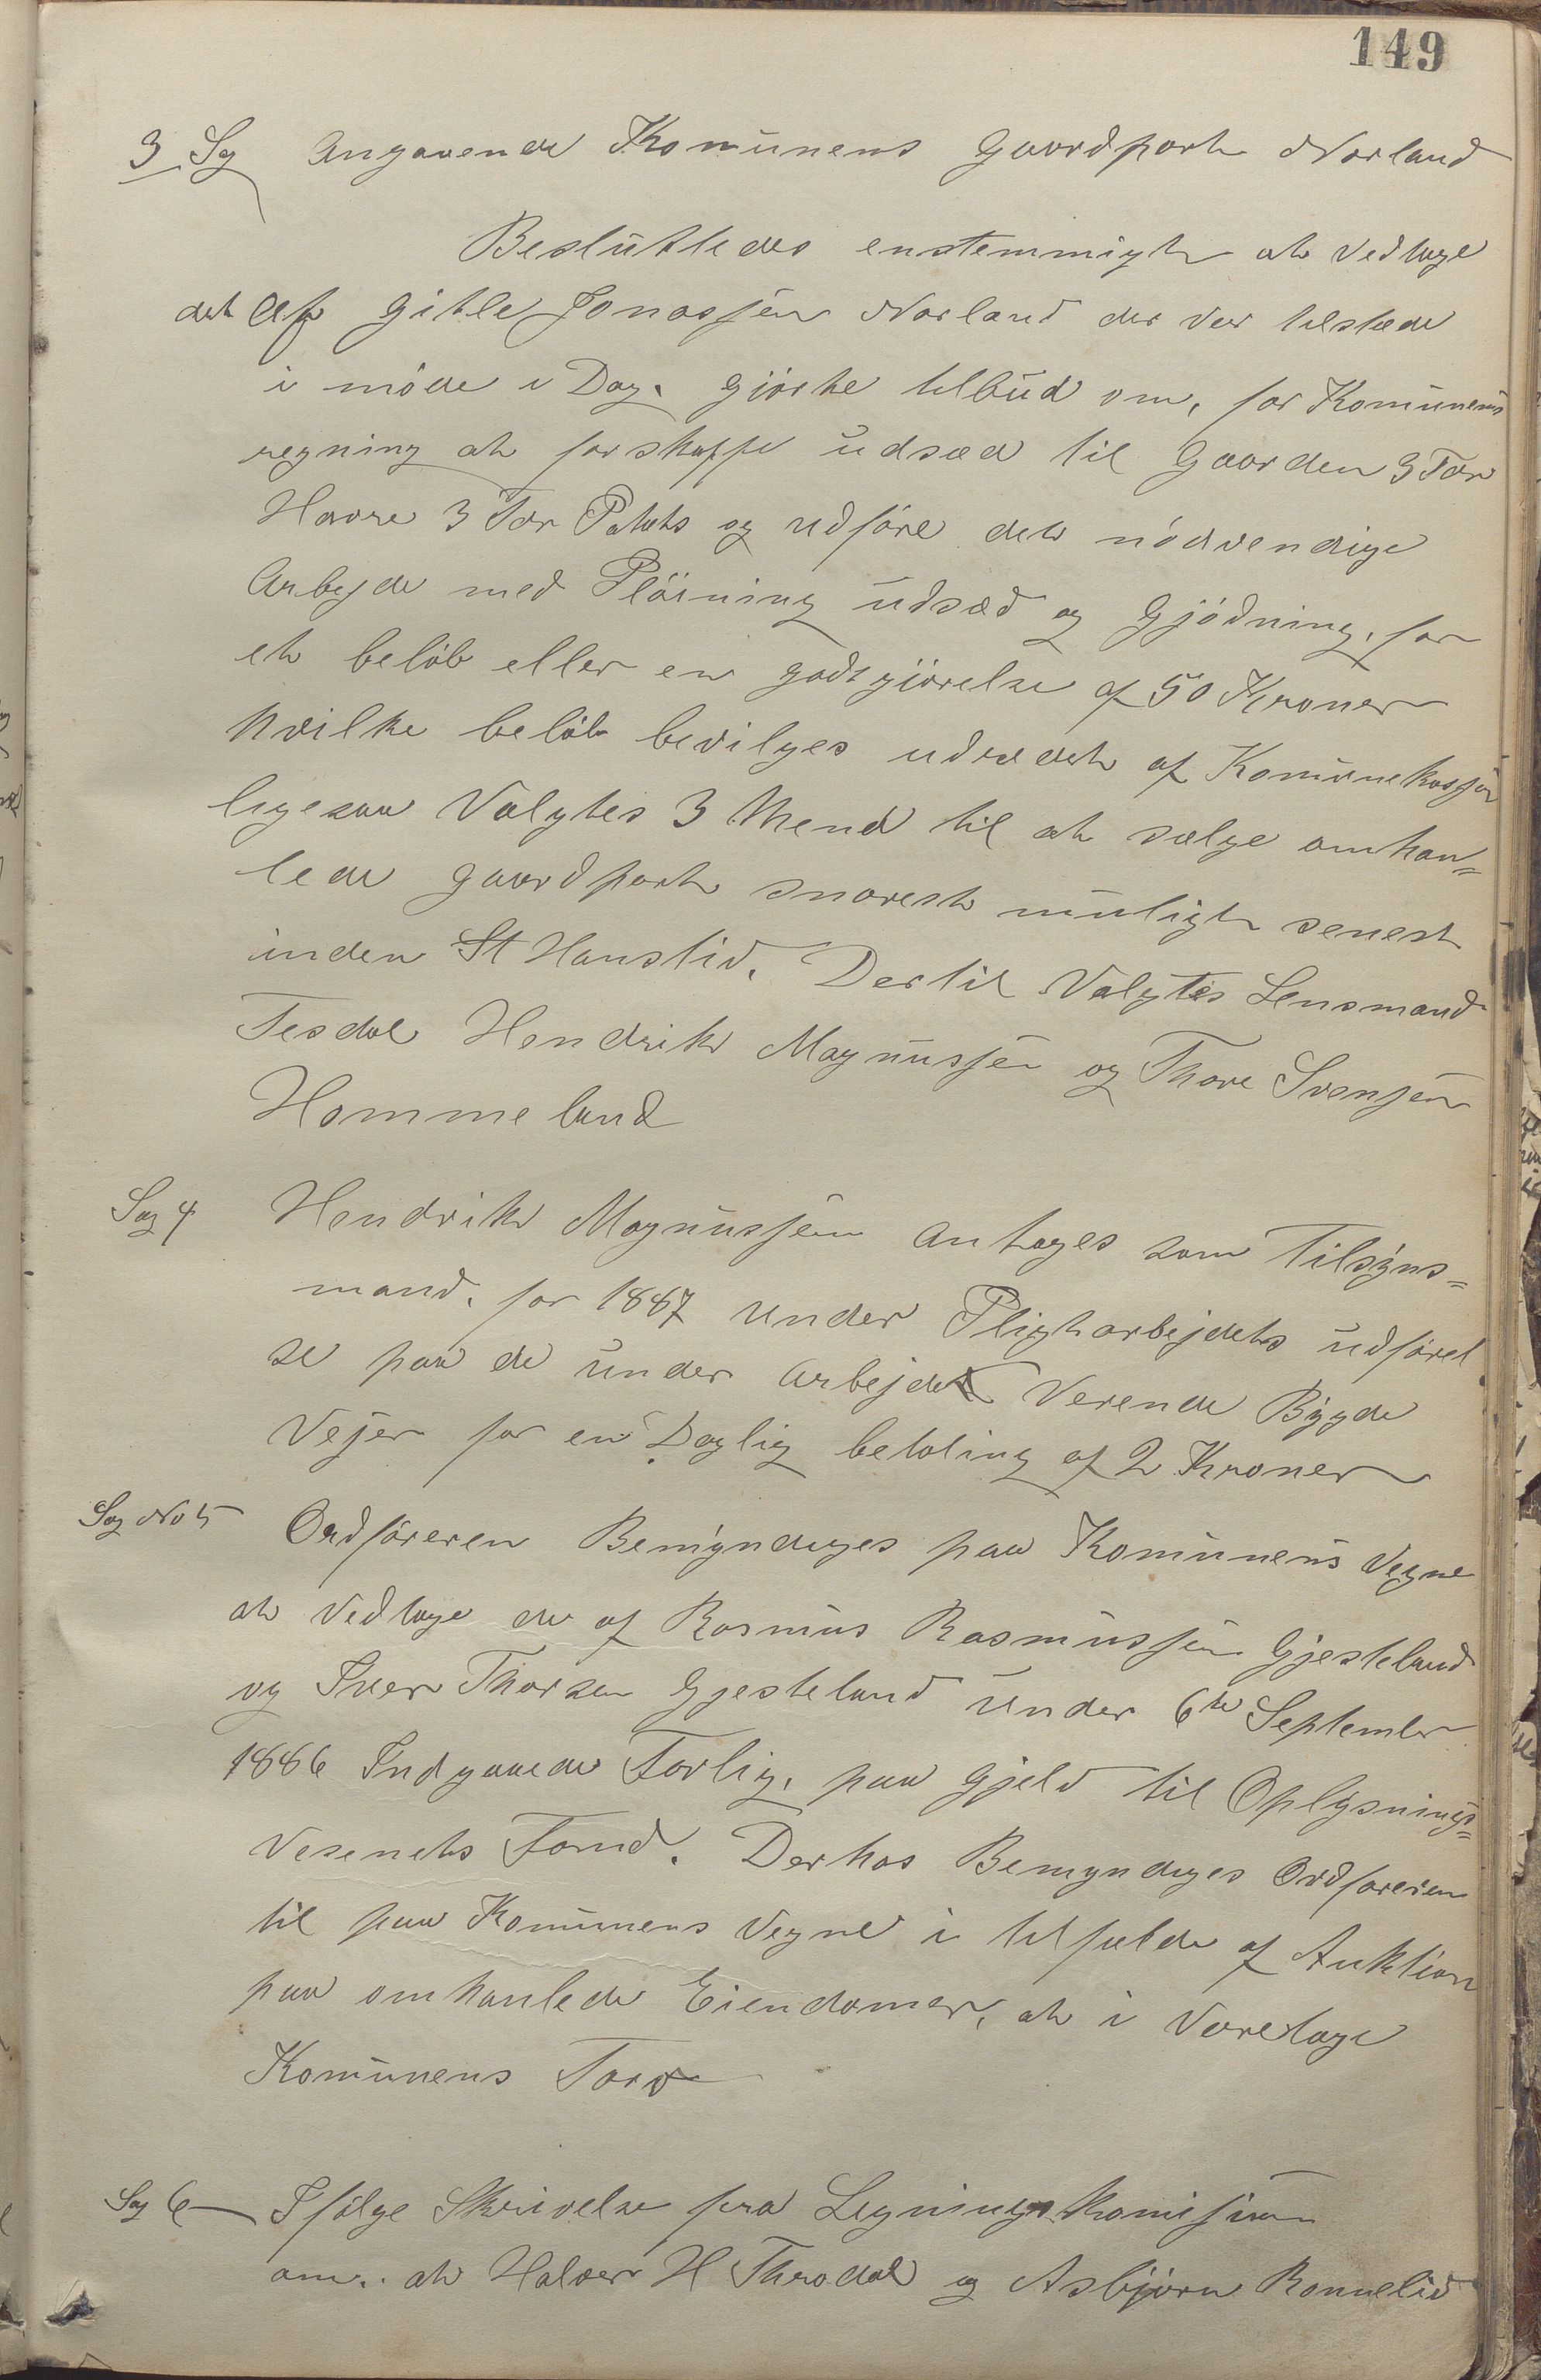 149
3 Sag Angaaende Komunens Gaardpart Norland
Besluttedes enstemmigt at vedtage
det Af Gitle Jonassen Norland der var tilstede
i möde i Dag. gjorte tilbud om, for Komunens
regning at forskaffe udsæd til Gaarden 3 Tdr
Havre 3 Tdr Potets og udføre det nödvendige
Arbejde med Pløining udsæd og Gjödning, for
et beløb eller en godtgjörelse af 50 Kroner
hvilke beløb bevilges udredet af Komunekassen
ligesaa Valgtes 3 Mend til at sælge omhan=
lede gaardpart snarest muligt senest
inden St Hanstid. Dertil Valgtes Lensmand
Tesdal Hendrik Magnussen og Thore Svensen
Hommeland
Sag 4 Hendrik Magnussen antages som Tilsyns=
mand. for 1887 under Pligtarbejdets udførel
se paa de under Arbejde Verende Bygde
Vejer for en Daglig betaling af 2 Kroner
Sag No 5 Ordføreren Bemyndiges paa Komunens Vegne
at Vedtage de af Rasmus Rasmussen Gjesteland
og Iver Thorsen Gjesteland under 6te September
1886 Indgaaede Forlig, paa Gjeld til Oplysnings=
Vesenets Fond. Derhos Bemyndiges Ordføreren
til paa Komunens Vegne i tilfælde af Auktion
paa omhanlede Eiendomer, at i Varetage
Komunens Tarv
Sag 6 Ifølge Skrivelse fra Ligningskomisjonen
om. at Halvor H Throdal og Asbjørn Ronnelid